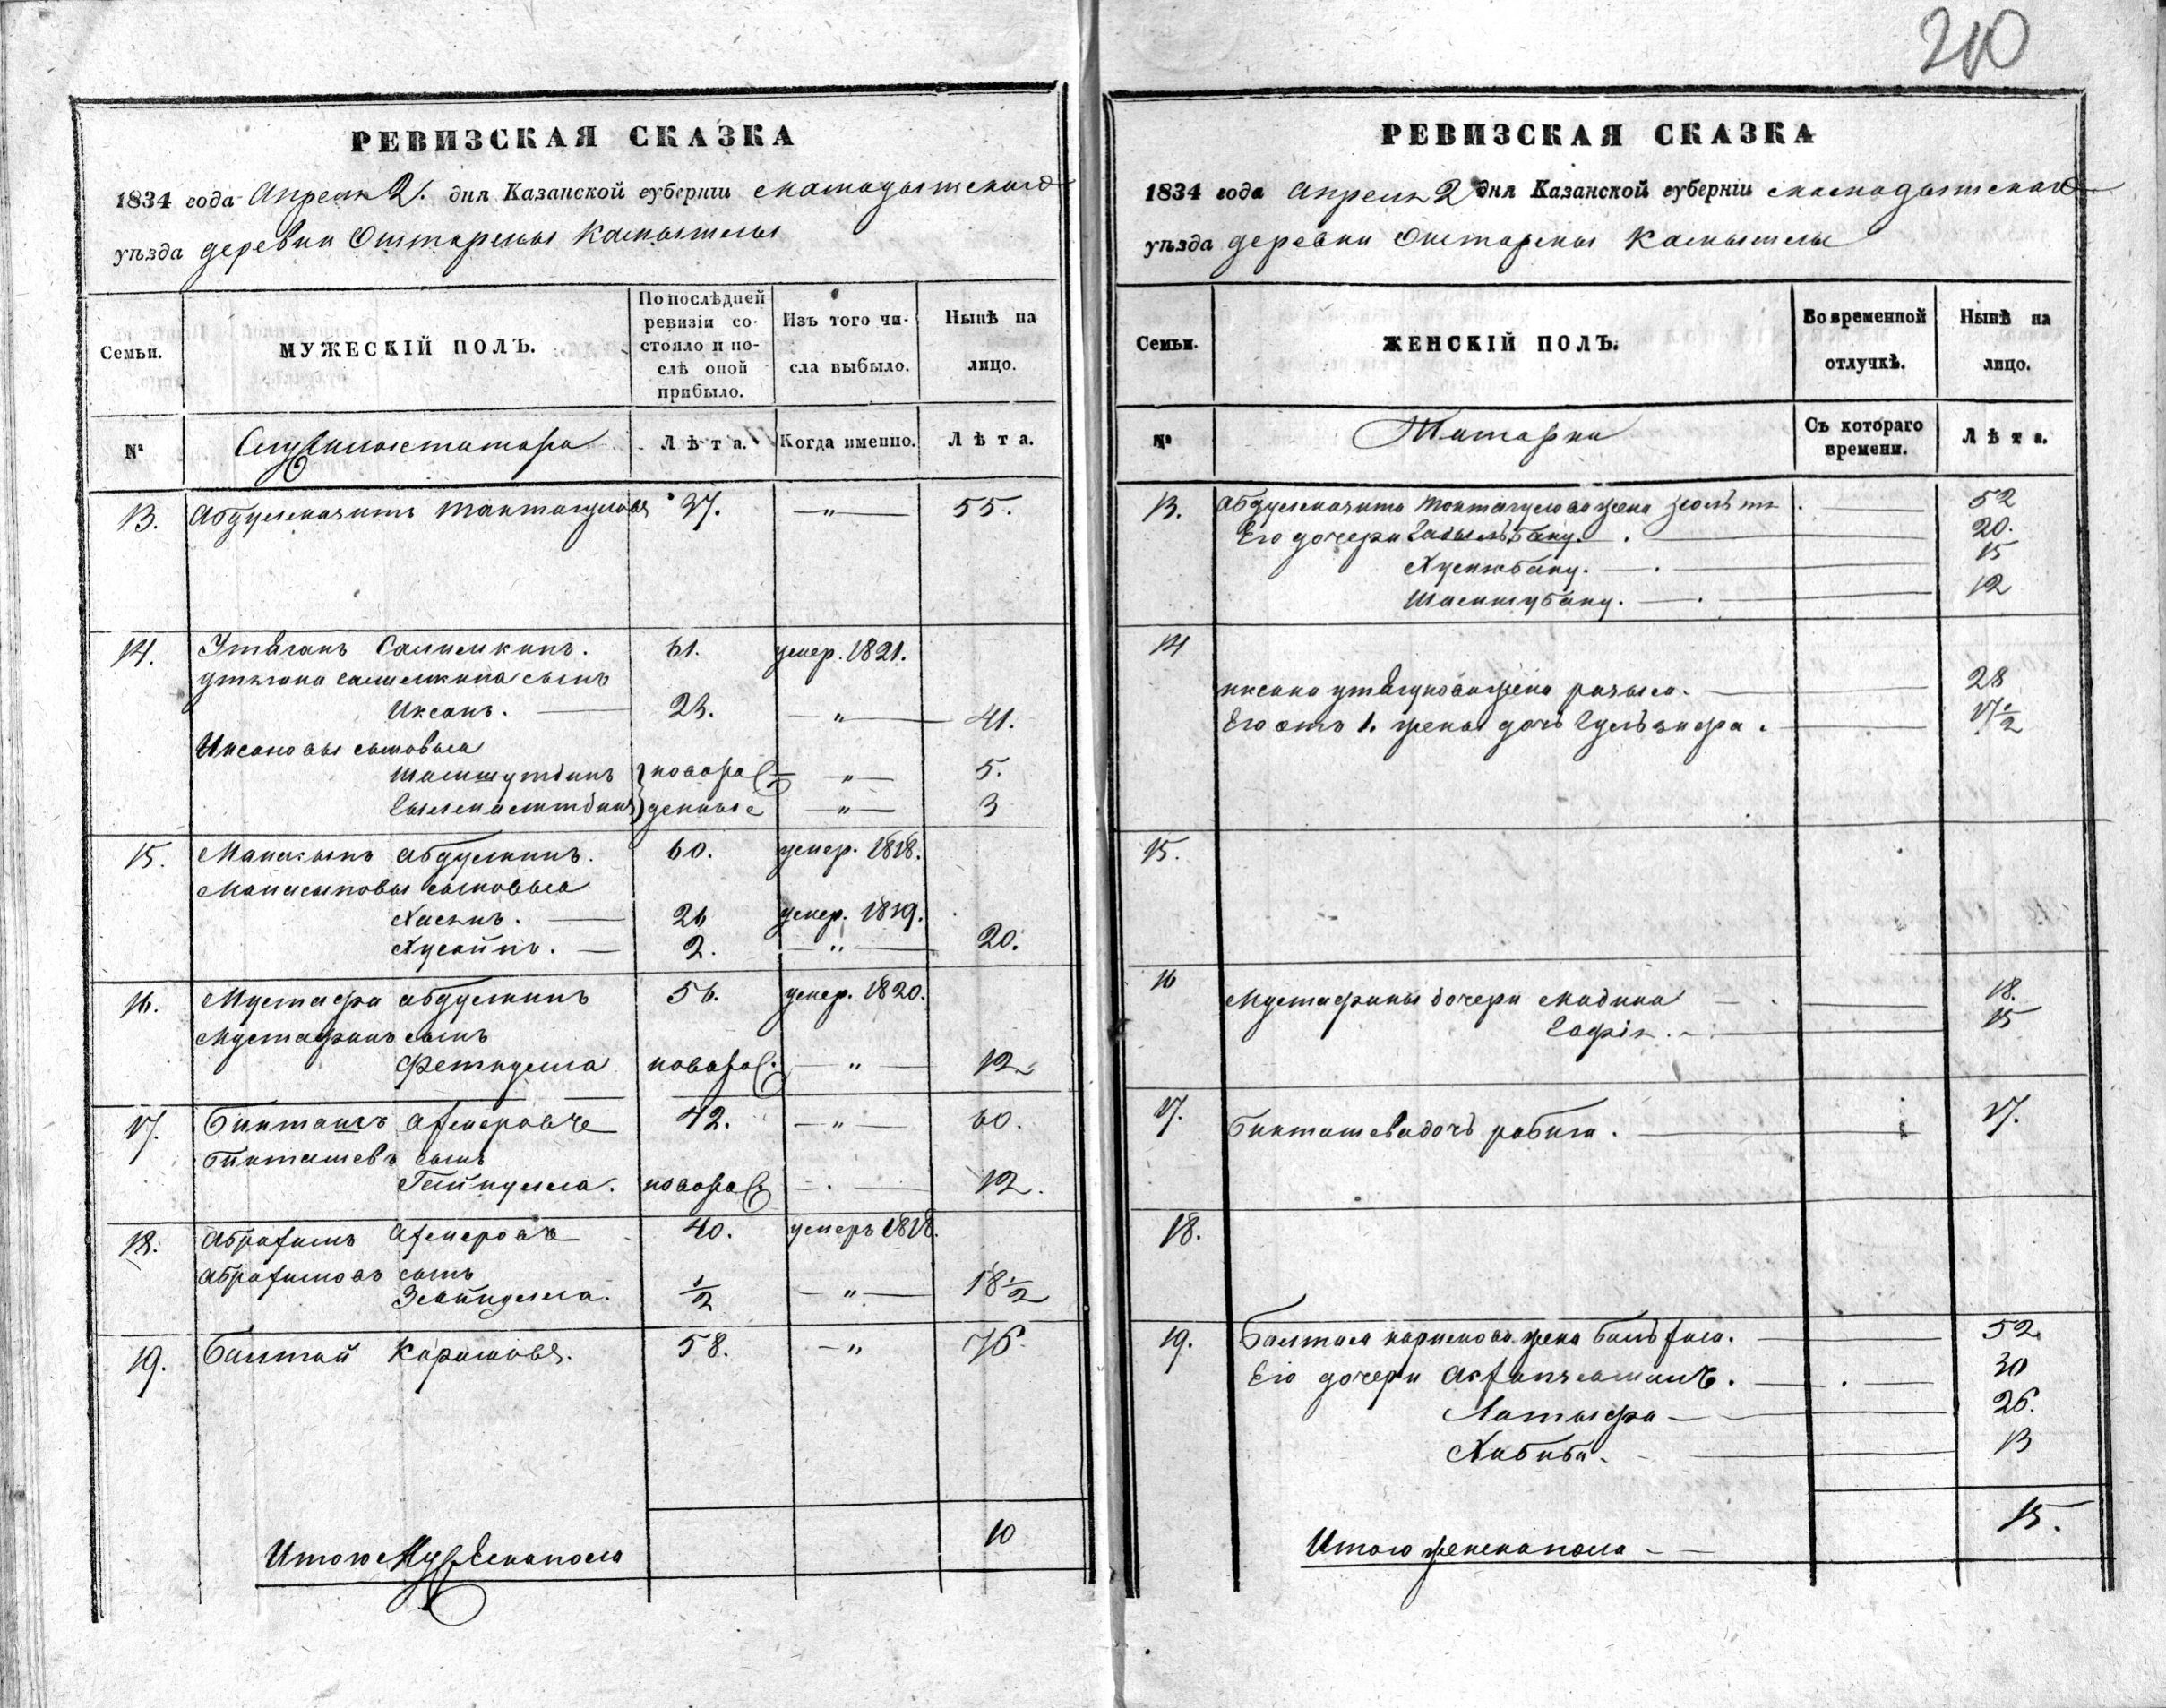 210
РЕВИЗСКАЯ СКАЗКА
1834 года Апреля 2. дня Казанской губерніи мамадышскаго
уѣзда деревни Оштармы Камышлы
Семьи.
МУЖЕСКІЙ ПОЛЪ.
По послѣдней ревизіи состояло и послѣ оной прибыло.
Изъ того числа выбыло.
Нынѣ на лицо.
№
Служилые татара
Лѣта.
Когда именно.
Лѣта.
13. Токтагуловъ 37. — " — 55.
14. Утяганъ Салимкинъ. 61. умер. 1821.
Утягана Салимкина сынъ
Иксанъ. — 23. — " — 41.
Иксановы сыновья
Шамшутдинъ } новорож — " — 5.
} денные — " — 3
15. Манасыпъ Абдулкинъ. 60. умер. 1818.
Манасыповы сыновья
Хасянъ. — 26 умер. 1819.
Хусаинъ. — 2. — " — 20.
16. Мустафа Абдулкинъ 56. умер. 1820.
Мустафинъ сынъ
Фетхулла новорож. — " — 12
17. Бикташъ 42. — " — 60.
Бикташевъ сынъ
новорож. — . — 12.
18. 40. умеръ 1818.
сынъ
½ — " — 18 ½
19. Балтай Каримовъ. 58. — " 76.
Итого Мужеска пола 10
РЕВИЗСКАЯ СКАЗКА
1834 года Апреля 2 дня Казанской губерніи мамадышскаго
уѣзда деревни Оштармы Камышлы
Семьи.
ЖЕНСКІЙ ПОЛЪ.
Во временной отлучкѣ.
Нынѣ на лицо.
№
Татарки
Съ котораго времени.
Лѣта.
13. Токтагулова жена . — 52
Его дочери . — 20.
Хуснжбану. — . — 15
Шамшубану. — . — 12
14
Иксана Утягунова жена — 28
Его отъ 1. жены дочь Гульзифа. — 17 ½
15.
16 Мустафины дочери Мадина — . — 18.
Гафія. — 15
17. Бикташева дочь Рабига. — 17.
18.
19. Балтая Каримова жена — 52.
Его дочери . — . — 30
Латыфа — 26.
Хабиба. — 13
Итого женска пола — — 15.